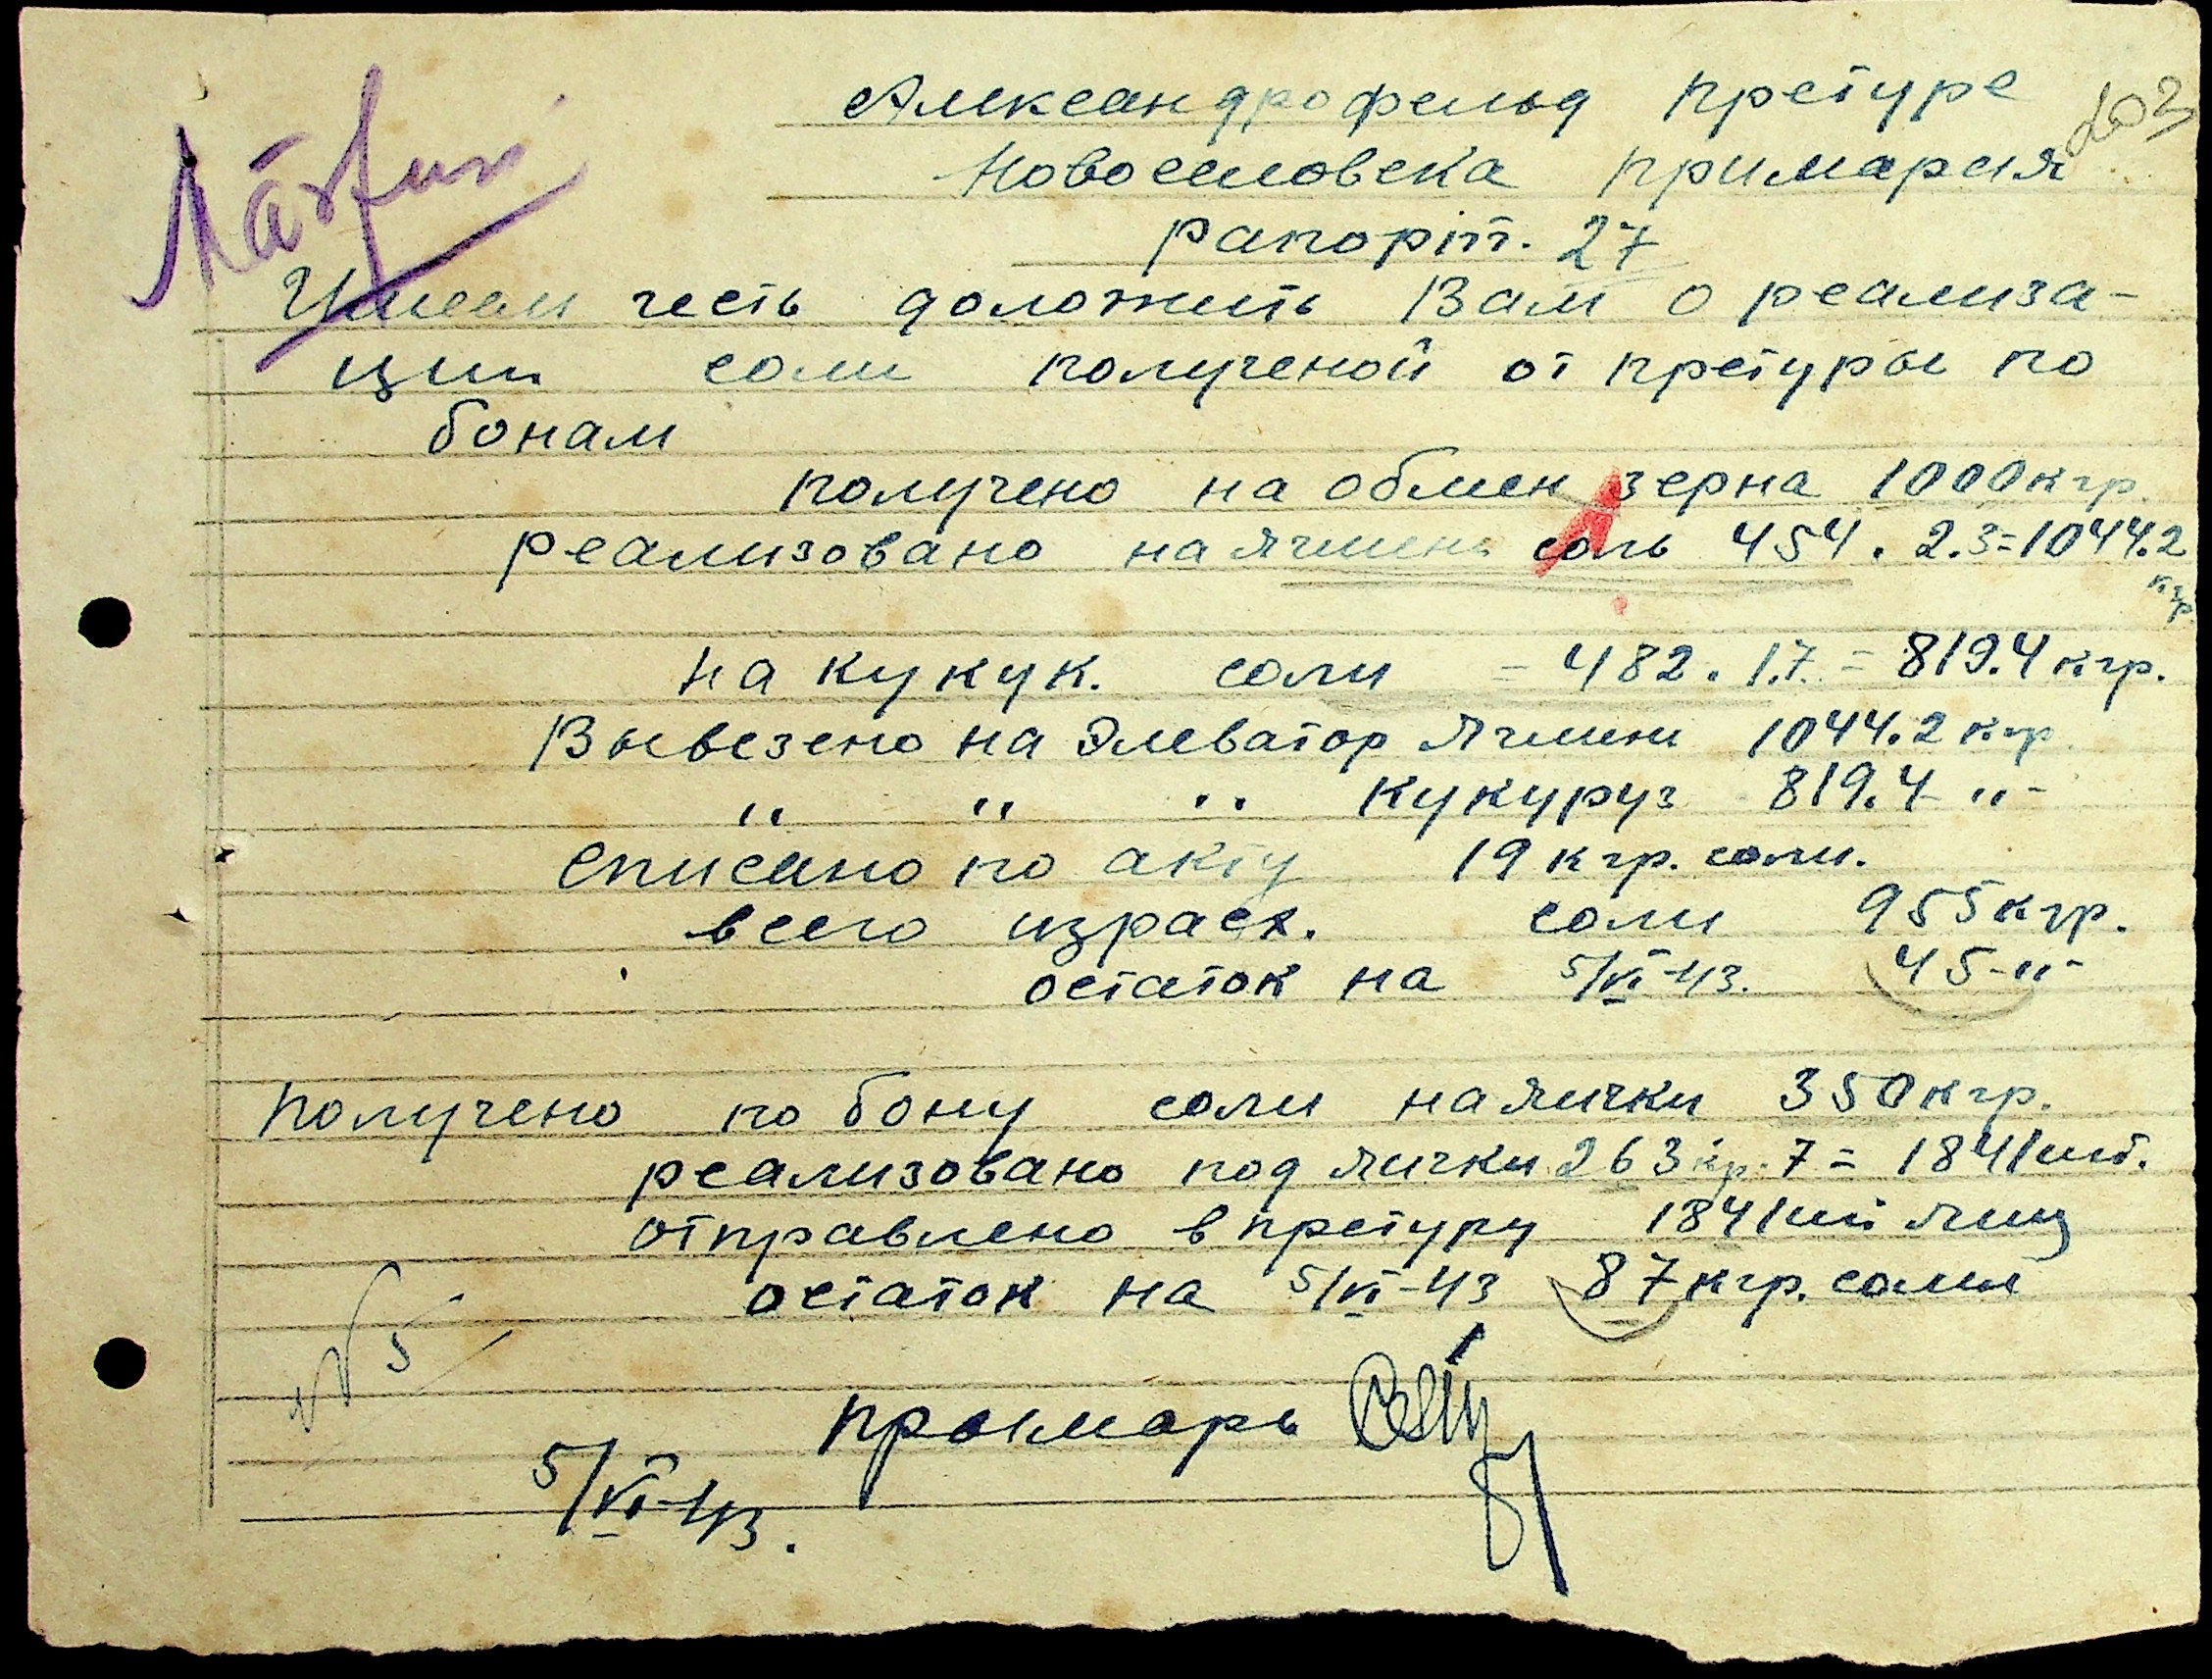 Mărfuri
Александрофельд претуре
202
Новоселовска примария
рапорт. 27
Имеем честь доложить Вам о реализа-
ции соли полученой от претуры по
бонам
получено на обмен зерна 1000 кгр.
реализовано на ячмень соль 454. 2.3=1044.2
кгр
на кукук. соли = 482. 1.7. = 819.4 кгр.
Вывезено на Элеватор Ячмени 1044.2 кгр.
" " " кукуруз 819.4 -"-
Списано по акту 19 кгр. соли.
всего израсх. соли 955 кгр.
остаток на 5/VI-43. 45 -"-
Получено по бону соли на яички 350 кгр.
реализовано под яички 263 кгр. 7 = 1841 шт.
отправлено в претуру 1841 шт яиц
остаток на 5/VI-43 87 кгр. соли
примарь
5/VI-43.